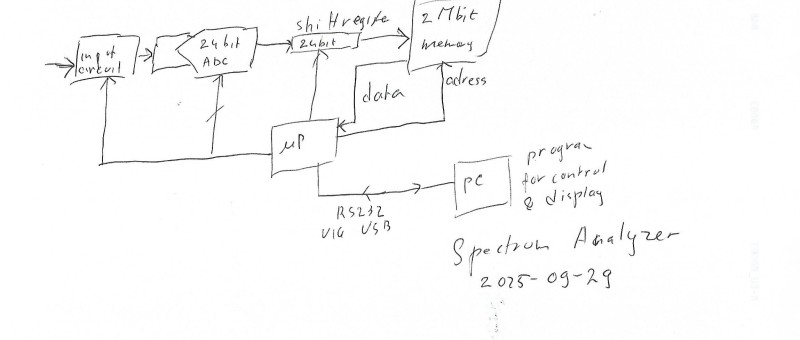 shiftregiste
2 Mbit
memory
input
circuit
24bit
ADC
24bit
data
adress
µP
PC
program
for control
& display
RS232
via USB
Spectrum Analyzer
2025-09-29